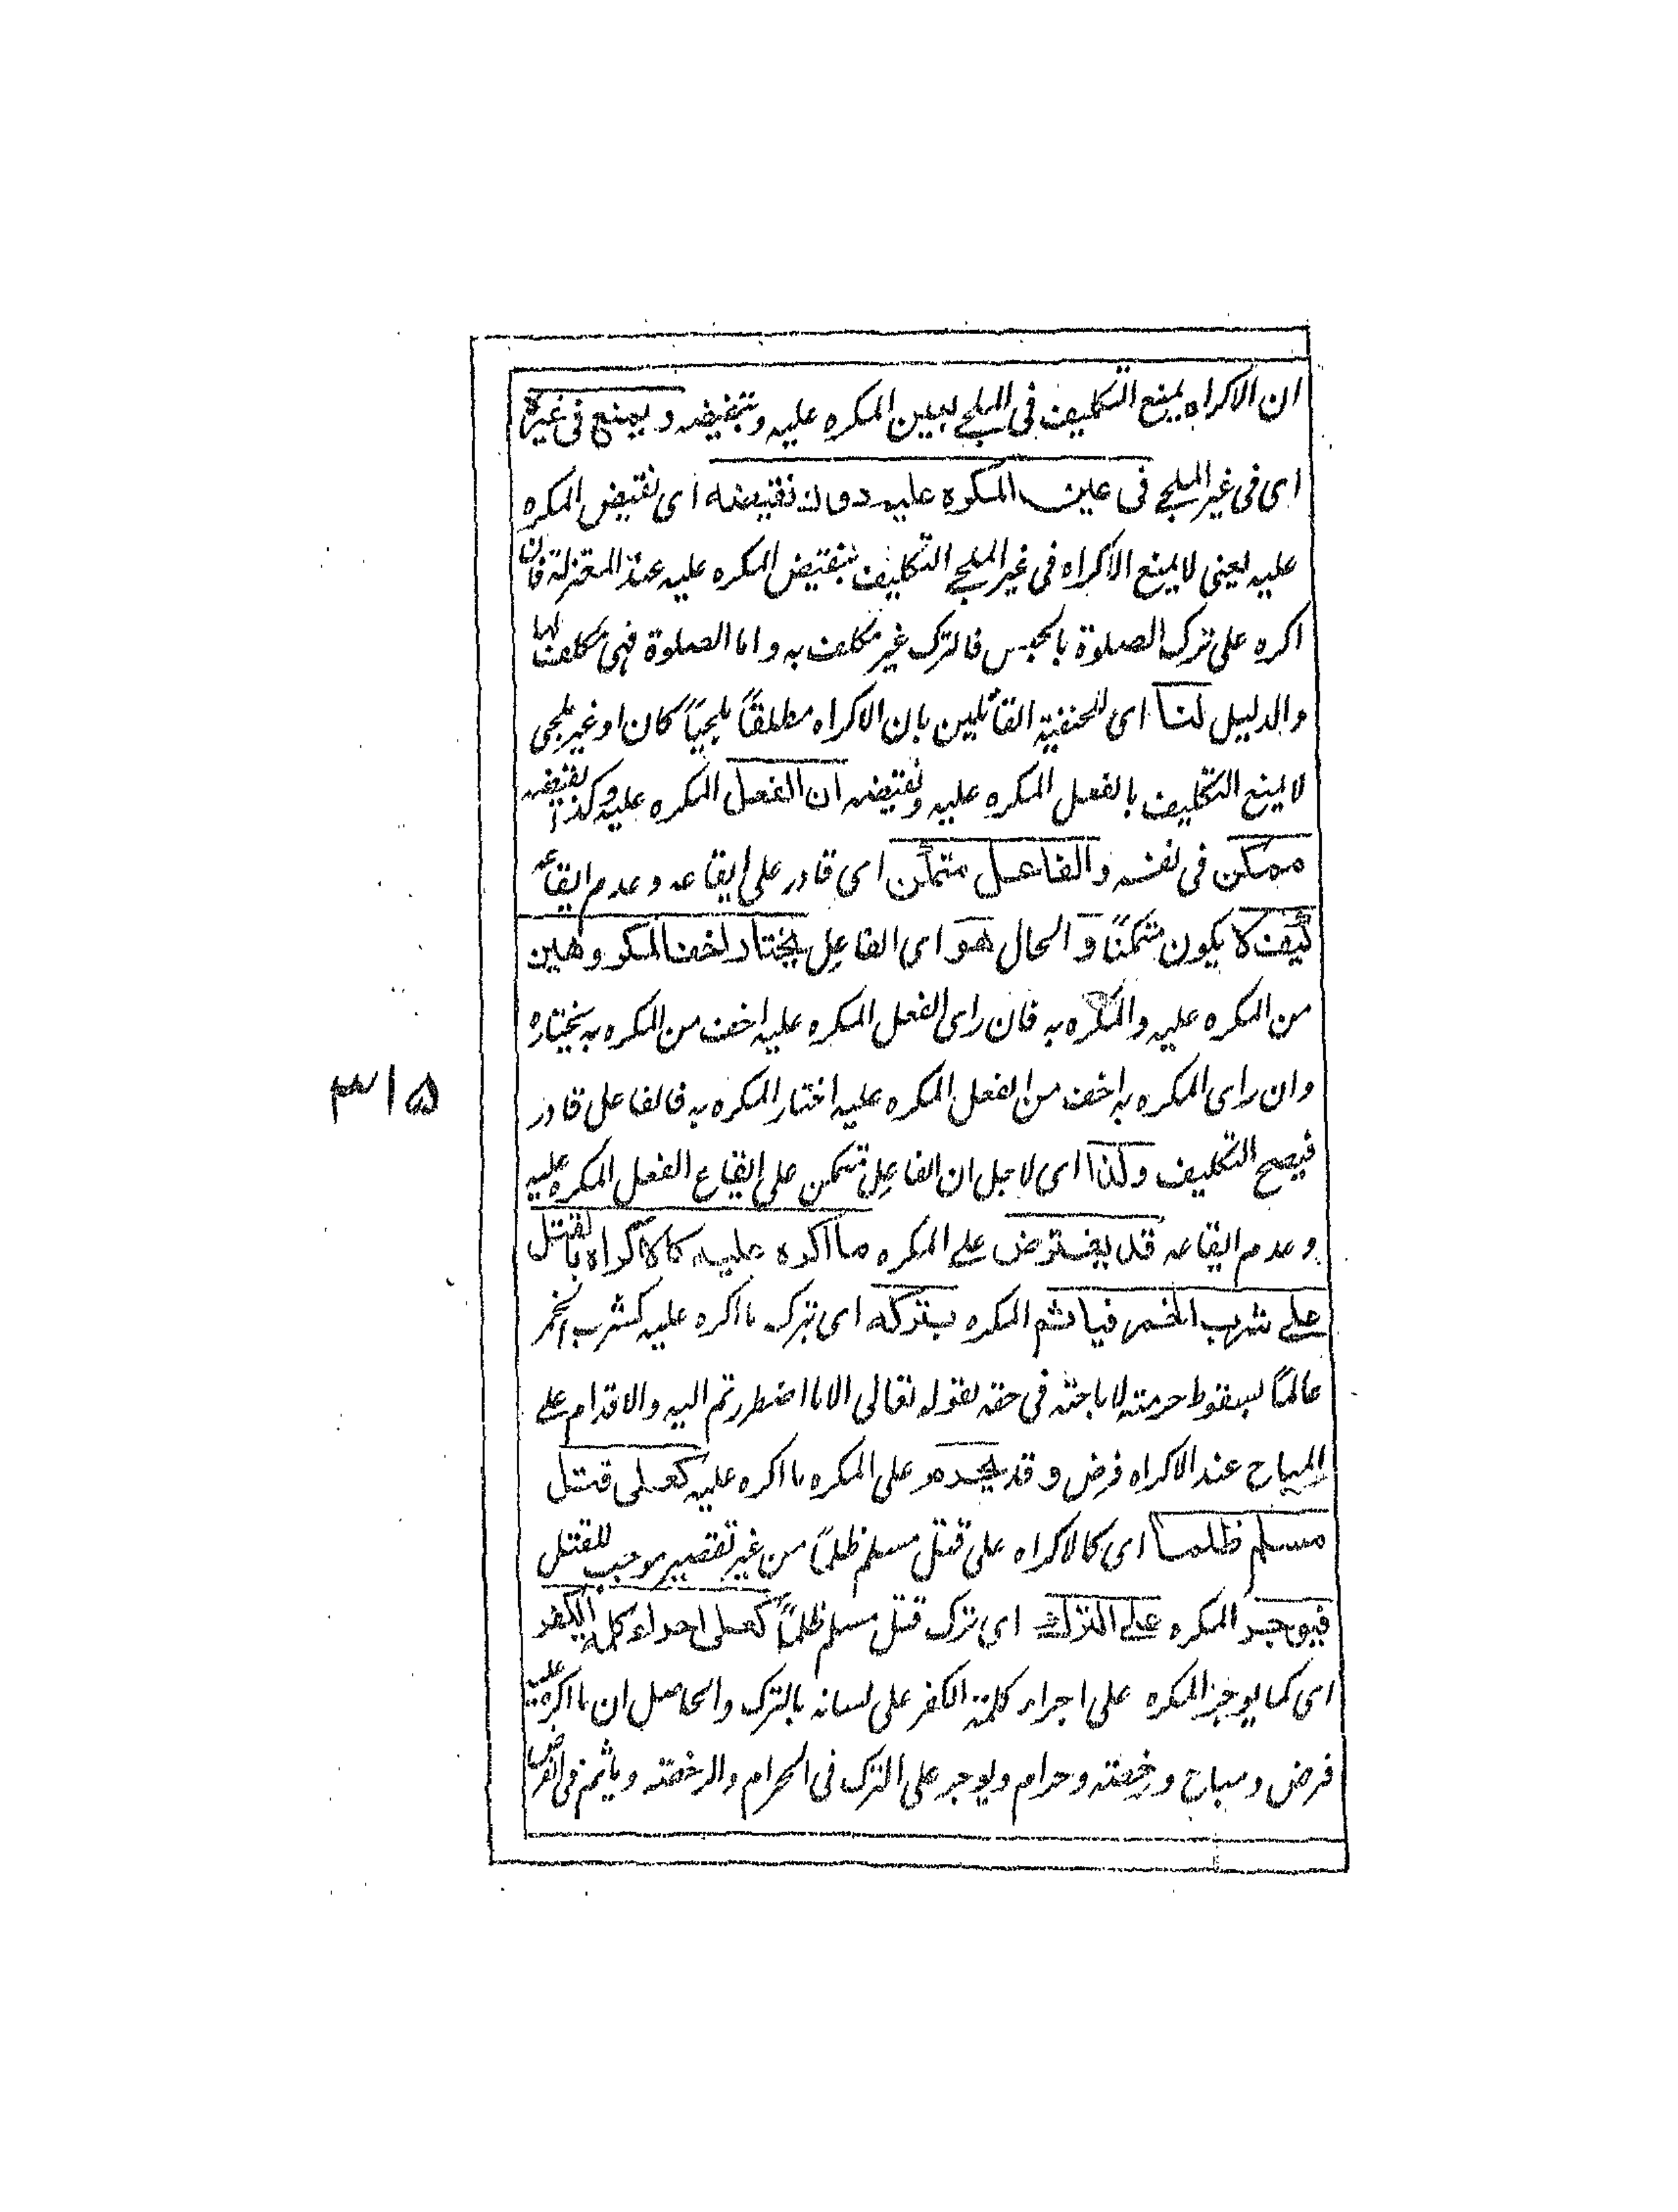 ان الاكراه يمنع التكليف فى الملجى بعين المكره عليه وبنقيضه ويمنع فى غيره
اى فى غير الملجى فى عين المكره عليه دون نقيضه اى نقيض المكره
عليه يعنى لا يمنع الاكراه فى غير الملجى التكليف بنقيض المكره عليه عند المعتزلة فان
اكره على ترك الصلوة بالحبس فالترك غير مكلف به واما الصلوة فهى مكلف بها
والدليل لنا اى للحنفية القائلين بان الاكراه مطلقاً ملجياً كان او غير ملجى
لا يمنع التكليف بالفعل المكره عليه ونقيضه ان الفعل المكره عليه وكذا نقيضه
ممكن فى نفسه والفاعل متمكن اى قادر على ايقاعه وعدم ايقاعه
كيف لا يكون متمكناً و الحال هو اى الفاعل يختار اخف المكروهين
من المكره عليه والمكره به فان راى الفعل المكره عليه اخف من المكره به يختاره
وان راى المكره به اخف من الفعل المكره عليه اختار المكره به فالفاعل قادر
فيصح التكليف وكذا اى لاجل ان الفاعل متمكن على ايقاع الفعل المكره عليه
وعدم ايقاعه قد يفترض على المكره ما اكره عليه كالاكراه بالقتل
على شرب الخمر فيأثم المكره بتركه اى بترك ما اكره عليه كشرب الخمر
عالماً لسقوط حرمته لاباحته فى حقه لقوله تعالى الا ما اضطررتم اليه والاقدام على
المباح عند الاكراه فرض وقد يحرم على المكره ما اكره عليه كعلى قتل
مسلم ظلما اى كالاكراه على قتل مسلم ظلماً من غير تقصير موجب للقتل
فيوجر المكره على الترك اى ترك قتل مسلم ظلماً كعلى اجراء كلمة الكفر
اى كما يوجر المكره على اجراء كلمة الكفر على لسانه بالترك والحاصل ان ما اكره عليه
فرض ومباح ورخصته وحرام ويوجر على الترك فى الحرام والرخصته وياثم فى الفرض
۳۱۵